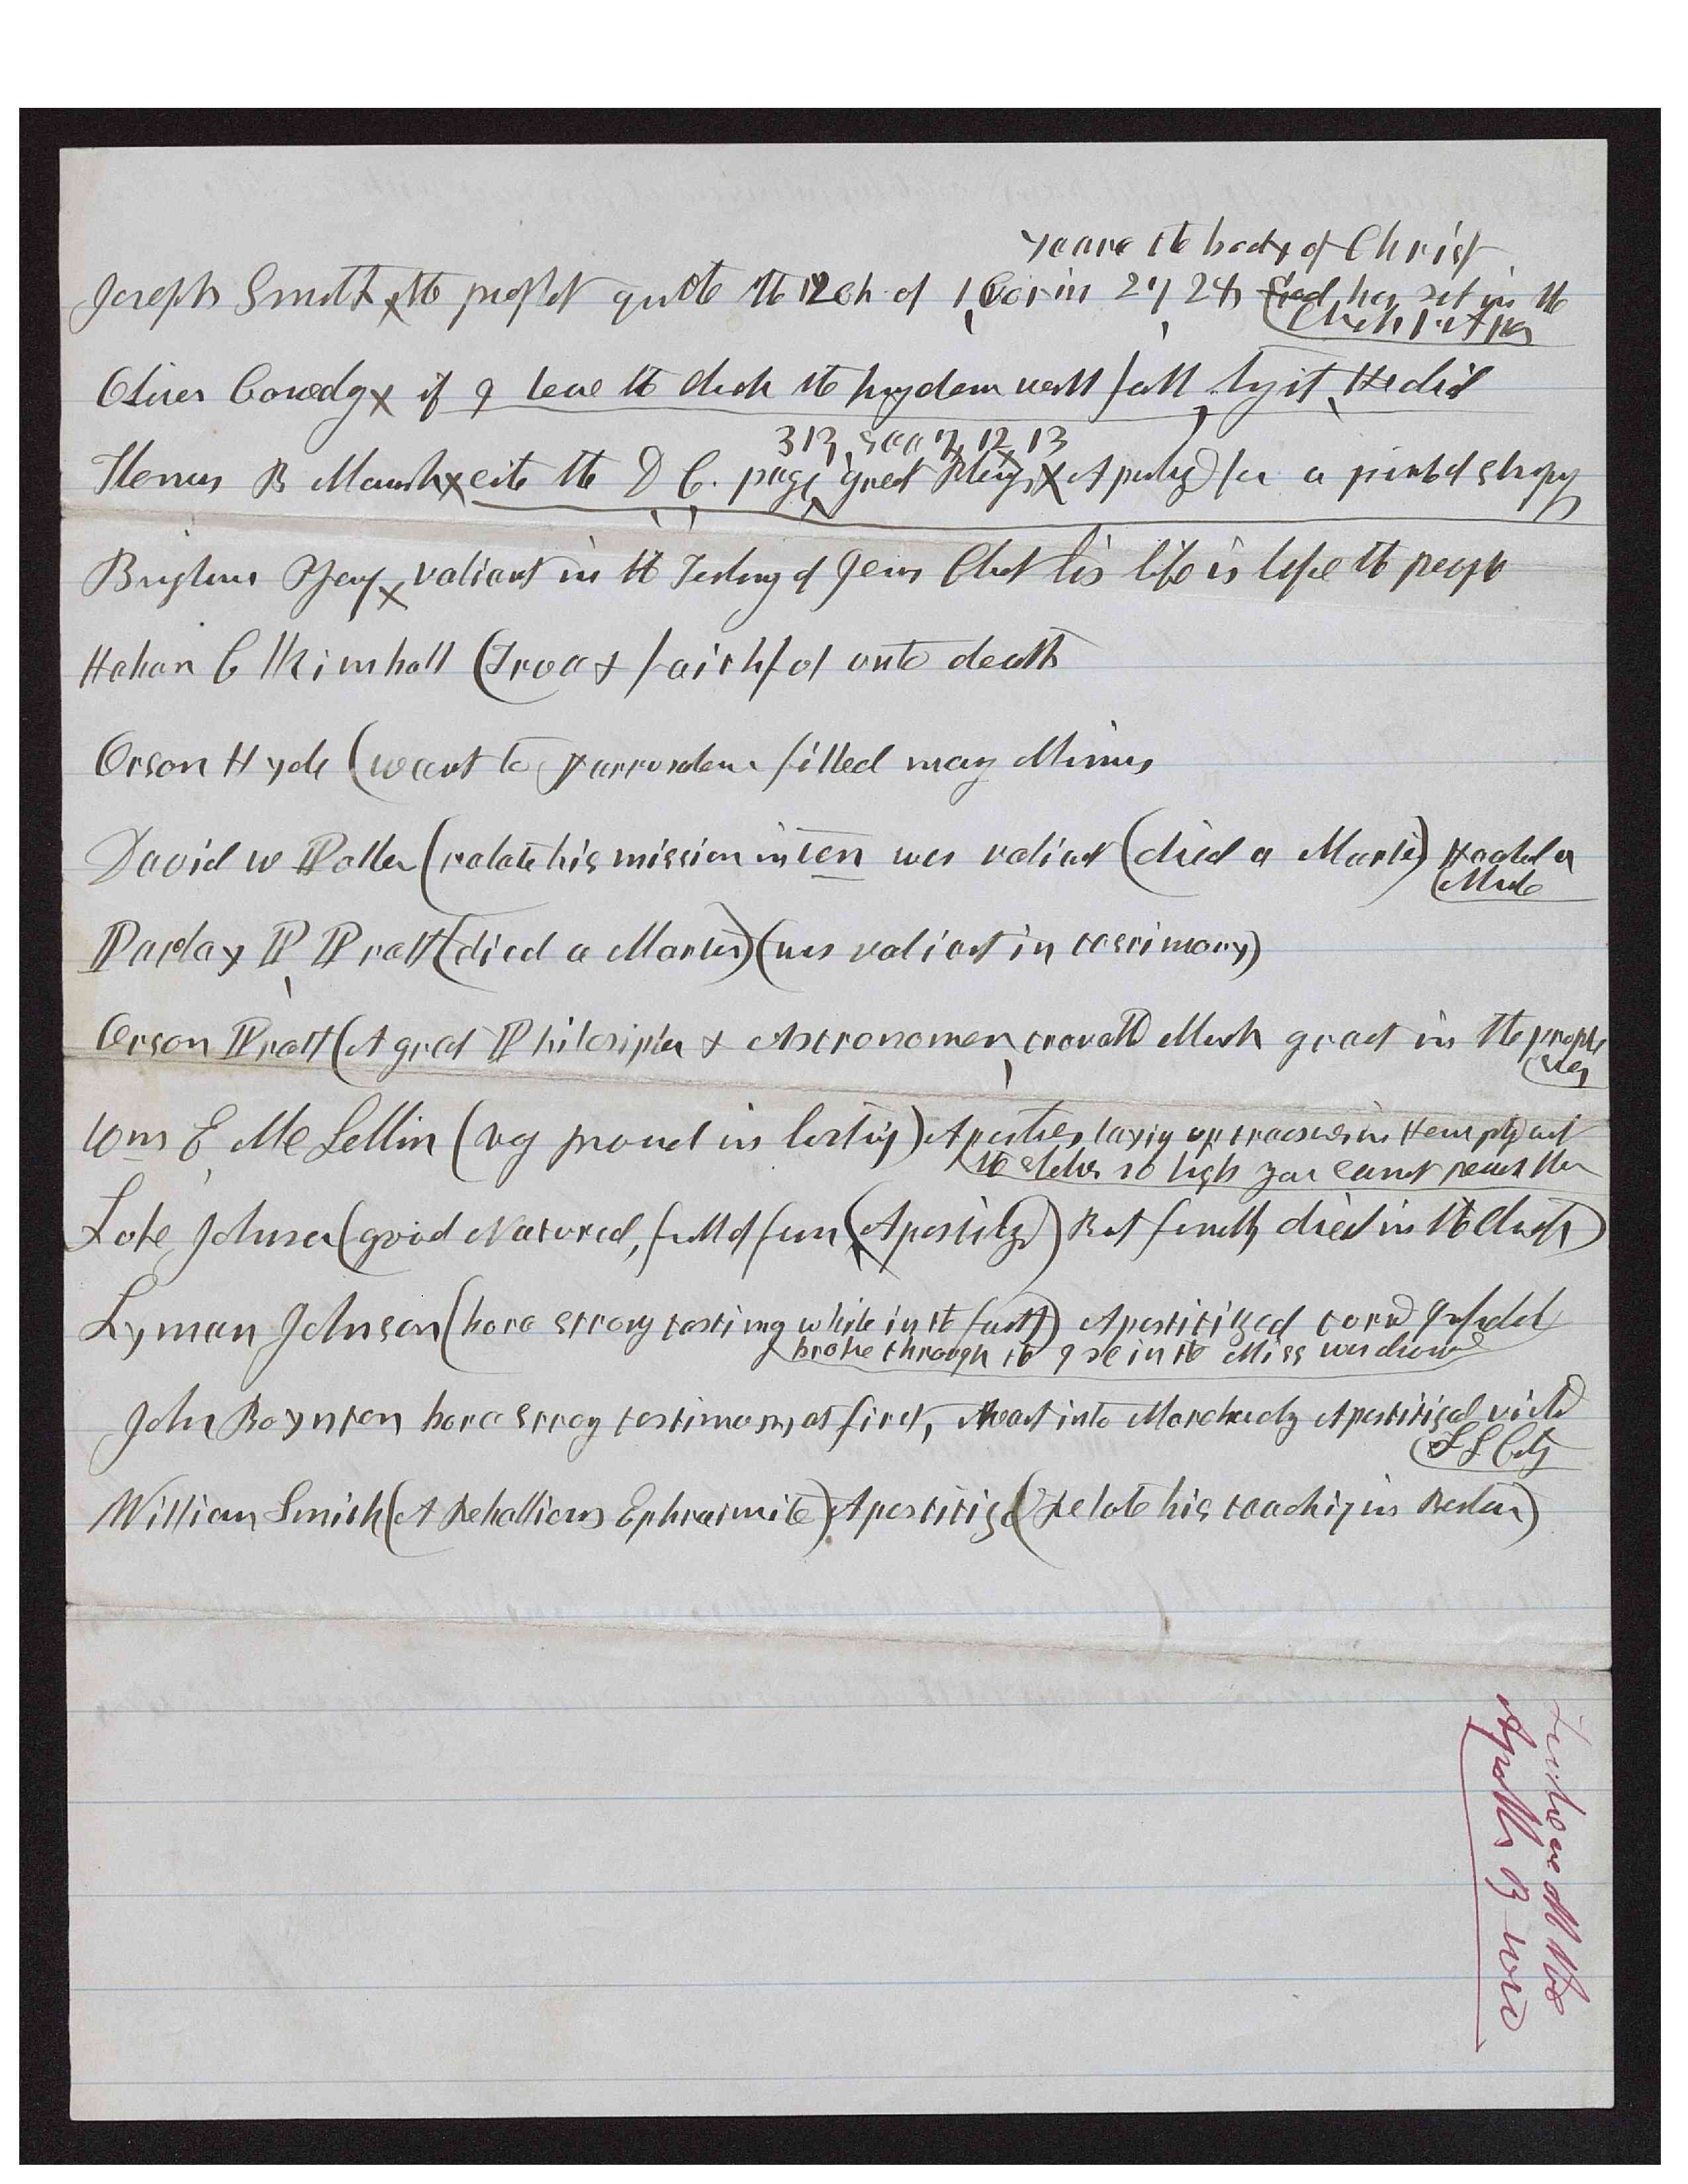 ye are the body of Christ
Joseph Smith, the prophet quote the 12 ch of 1 Corin 27, 28 God has set in the
Church 1st Apo
Oliver Cowdy x if I leve the church the kingdom will fall try it, He did
313, sec 12, 13
B Marsh x cite the D C. page great x Aposty) for a pint of stropy
Brigham Young x valiant in the Testimony of Jesus Christ his life is before the people
Heber C Kimball (True & faithful unto death
Orson Hyde (went to Jerrusalem filled many Missions
David W Patten (relate his mission in Ten was valiant (died a Marter)
Parley P Pratt (died a Marter) (was valiant in testimony)
Orson Pratt (A great Philosipher & Astronomer, traveled Much great in the prophe
cies
Wm E Mc Lellin (very proud in) Apostles laying up treasures in Hemp
the so high you cannot reach them
Luke Johnson (good Natured, full of fun (Apostitized) But finally died in the Church)
Lyman Johnson (bore strong testimony while in the faith) Apostitized turnd Infidel
broke through the Ice in the Miss was drownd
John Boynton bore strong testimony at first, Went into Apostitised visited
S L City
William Smith (A Rebellious Ephraimite) Apostitised (Relate his teaching in Boston)
Apostles B word